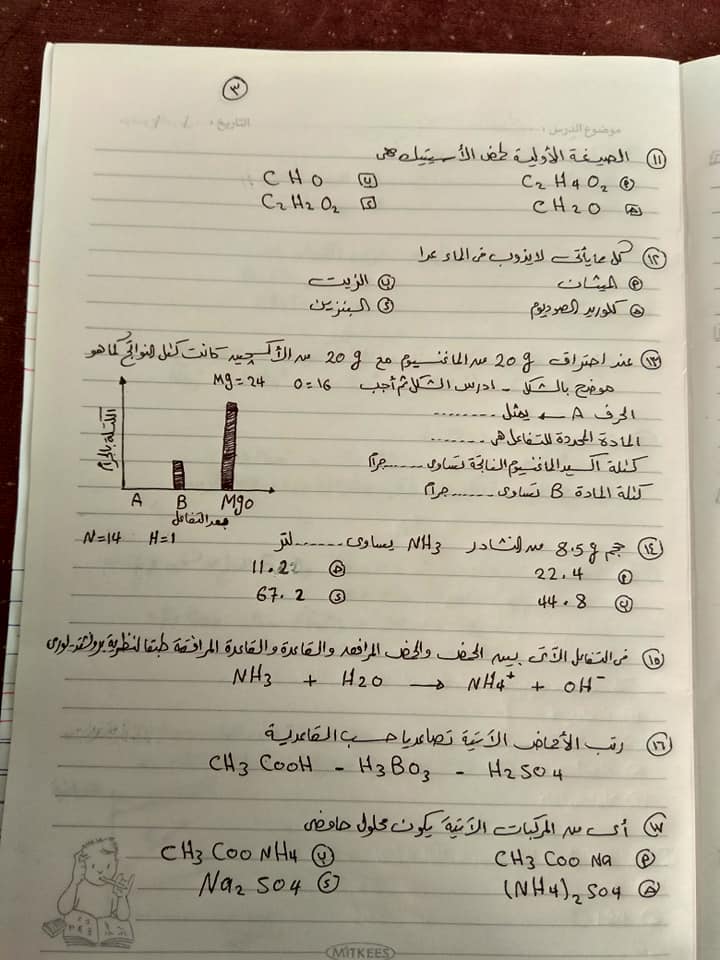 ٣
موضوع الدرس : التاريخ : / /
١١ الصيغة الأولية لحمض الأسيتيك هى
أ C2H4O2 ب CHO
ج CH2O د C2H2O2
١٢ كل ما يأتى لا يذوب فى الماء عدا
أ الميثان ب الزيت
ج كلوريد الصوديوم د البنزين
١٣ عند احتراق 20 g من الماغنسيوم مع 20 g من الأكسجين كانت كتل النواتج كما هو
موضح بالشكل - ادرس الشكل ثم أجب O=16 Mg=24
الحرف A ← يمثل ........
المادة المحددة للتفاعل هى ........
كتلة أكسيد الماغنسيوم الناتجة تساوى ...... جرام
كتلة المادة B تساوى ...... جرام
الكتلة بالجرام
A B MgO
بعد التفاعل
١٤ حجم 8.5g من النشادر NH3 يساوى ....... لتر H=1 N=14
أ 22.4 ج 11.2
ب 44.8 د 67.2
١٥ فى التفاعل الآتى بين الحمض والحمض المرافق والقاعدة والقاعدة المرافقة طبقا لنظرية برونشتد - لورى
NH3 + H2O → NH4+ + OH-
١٦ رتب الأحماض الآتية تصاعديا حسب القاعدية
CH3COOH - H3BO3 - H2SO4
١٧ أى من المركبات الآتية يكون محلول حامضى
أ CH3COONa ب CH3COONH4
ج (NH4)2SO4 د Na2SO4
MITKEES